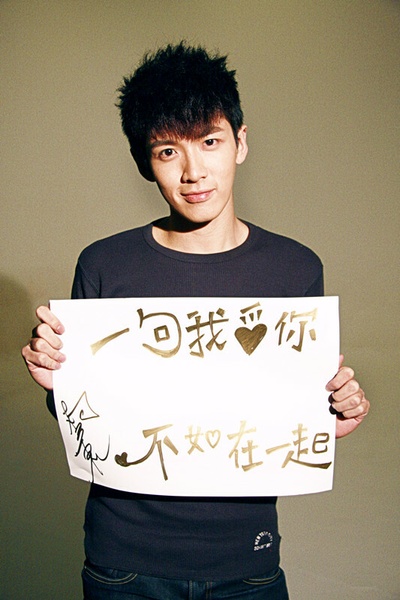 一句我愛你
不如在一起